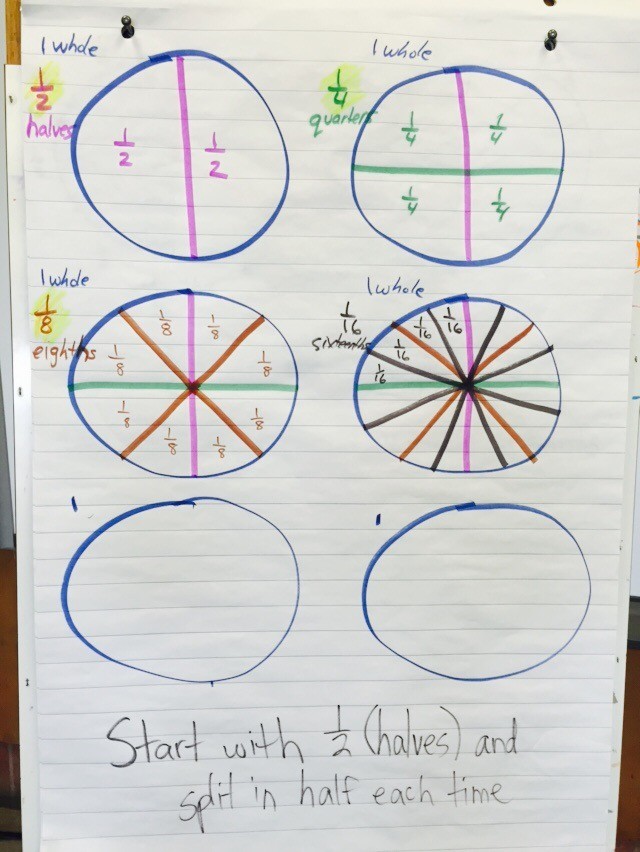 1 whole
1/2
halves
1/2 1/2
1 whole
1/4
quarters
1/4 1/4
1/4 1/4
1 whole
1/8
eighths
1/8 1/8
1/8 1/8
1/8 1/8
1/8 1/8
1 whole
1/16
sixteenths
1/16 1/16 1/16 1/16
1
1
Start with 1/2 (halves) and
split in half each time